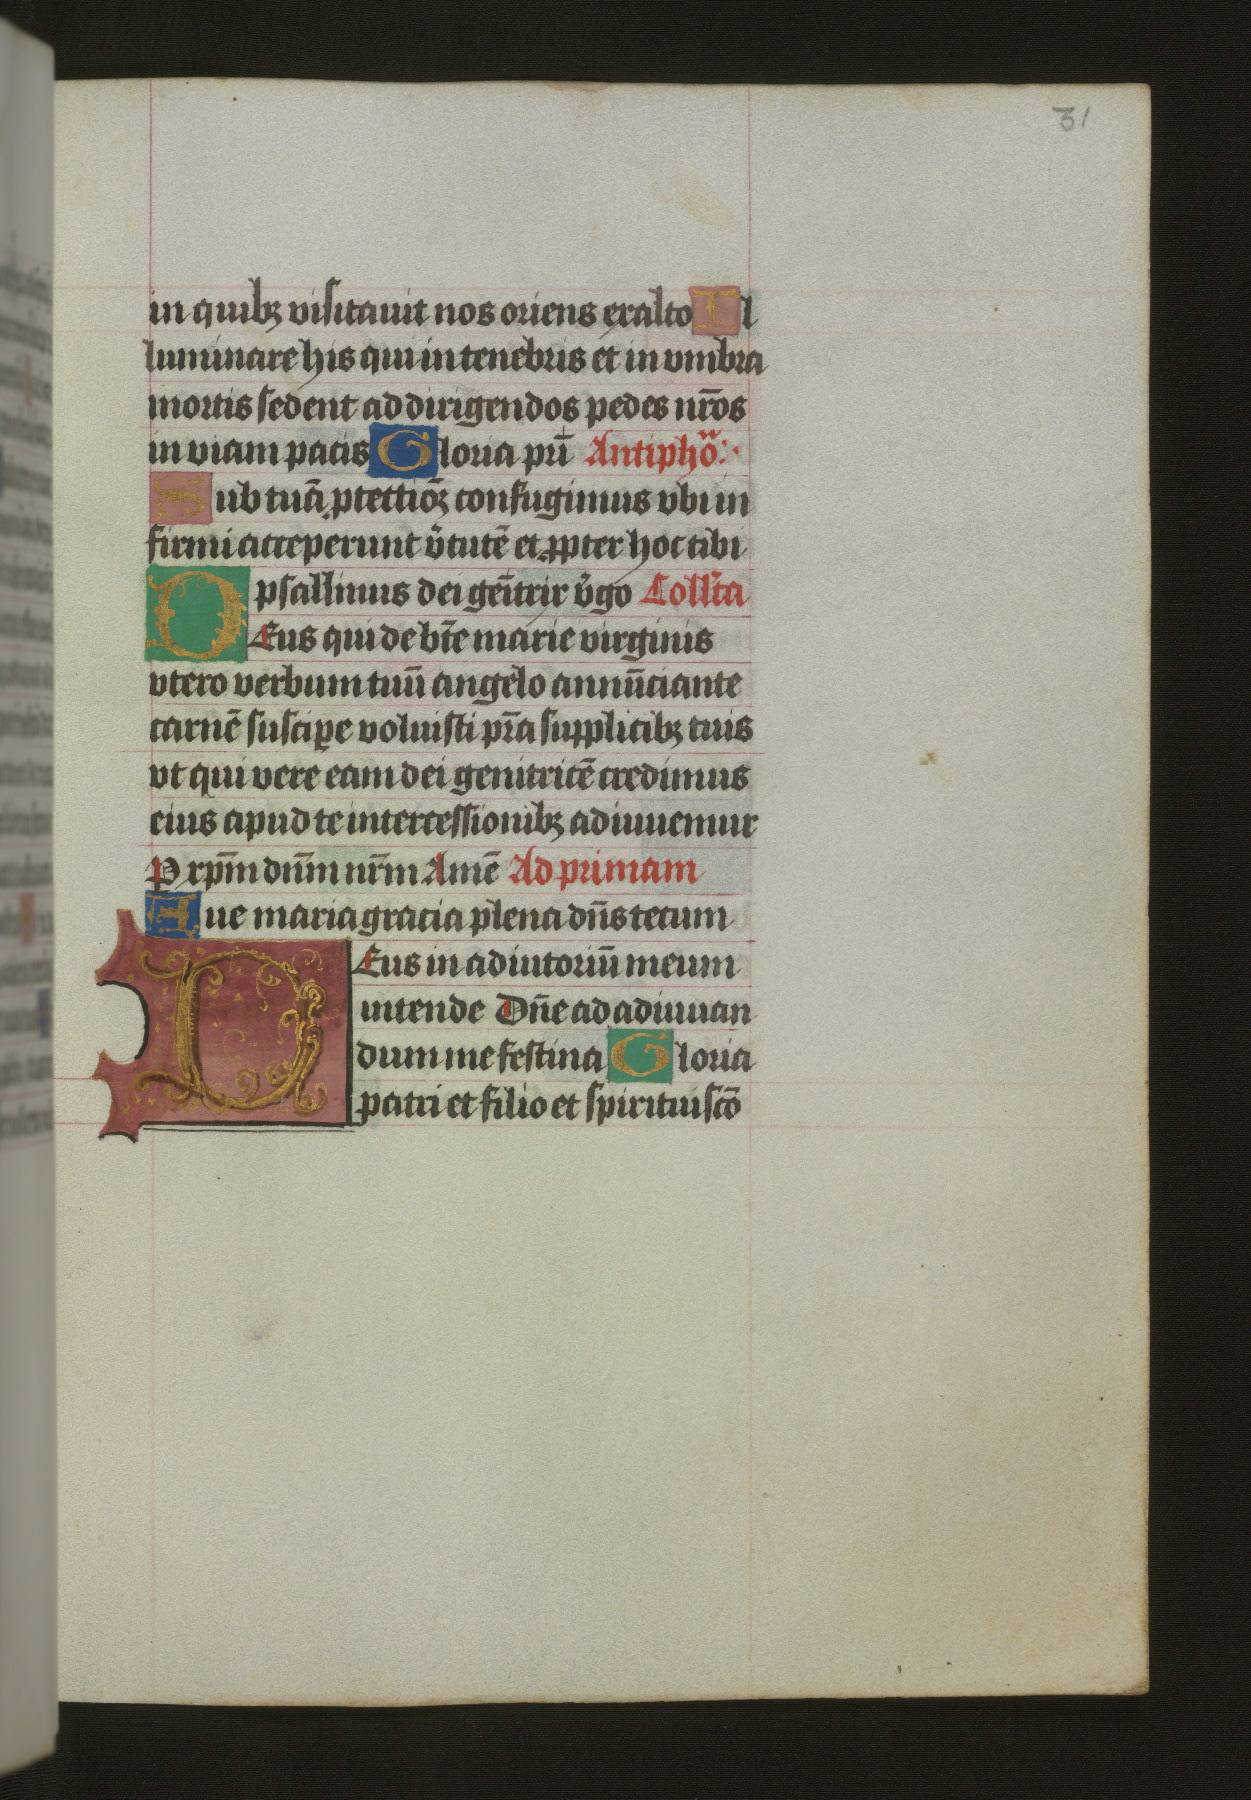 31
in quibꝫ visitauit nos oriens exalto Il
luminare his qui in tenebris et in vmbra
mortis sedent ad dirigendos pedes nr̄os
in viam pacis Gloria pr̄i Antipho᷒ᵃ:·
Sub tuā ꝓtectiōꝫ confugimus vbi in
firmi acceperunt v̄tutē et ꝓpter hoc tibi
psallimus dei gen̄trix v̄go Coll̄ta
DEus qui de btē marie virginis
vtero verbum tuū angelo annūciante
carnē suscipe voluisti pr̄a supplicibꝫ tuis
vt qui vere eam dei genitricē credimus
eius apud te intercessionibꝫ adiuuemur
P xp̄m dn̄m nr̄m Amē Ad primam
Aue maria gracia plena dn̄s tecum
DEus in adiutoriū meum
intende Dn̄e ad adiuuan
dum me festina Gloria
patri et filio et spiritui sc̄o